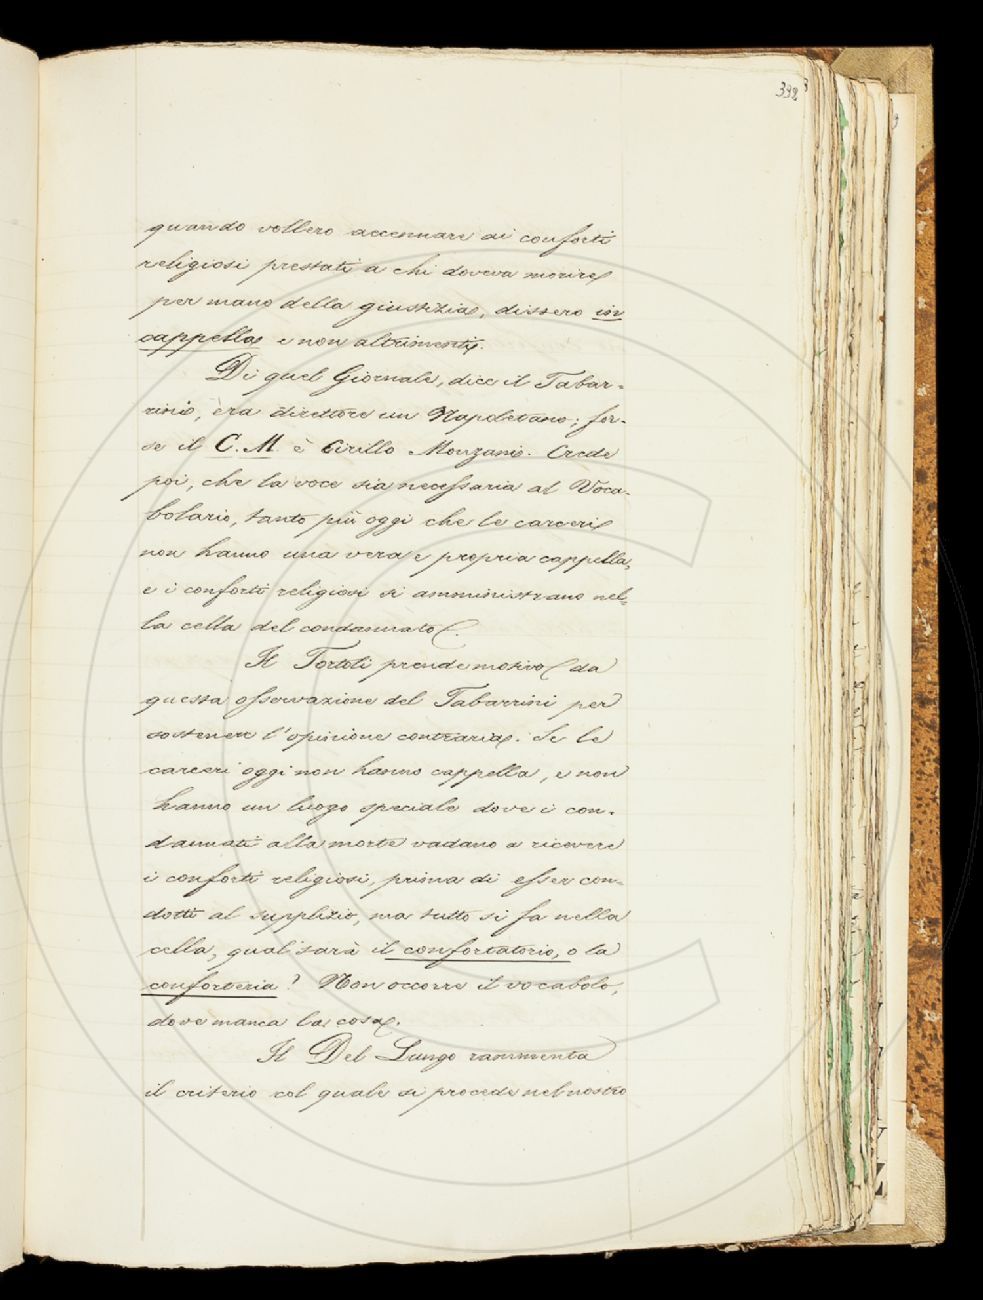 332
quando vollero accennare ai conforti
religiosi prestati a chi doveva morire
per mano della giustizia, dissero in
cappella e non altrimenti.
Di quel Giornale, dice il Tabar-
rini, era direttore un Napoletano; for-
se il C. M. è Cirillo Monzani. Crede
poi, che la voce sia necessaria al Voca-
bolario, tanto più oggi che le carceri
non hanno una vera e propria cappella,
e i conforti religiosi si amministrano nel-
la cella del condannato.
Il Tortoli prende motivo da
questa osservazione del Tabarrini per
sostenere l'opinione contraria. Se le
carceri oggi non hanno cappella, e non
hanno un luogo speciale dove i con-
dannati alla morte vadano a ricevere
i conforti religiosi, prima di esser con-
dotti al supplizio, ma tutto si fa nella
cella, qual sarà il confortatorio, o la
conforteria? Non occorre il vocabolo,
dove manca la cosa.
Il Del Lungo rammenta
il criterio col quale si procede nel nostro